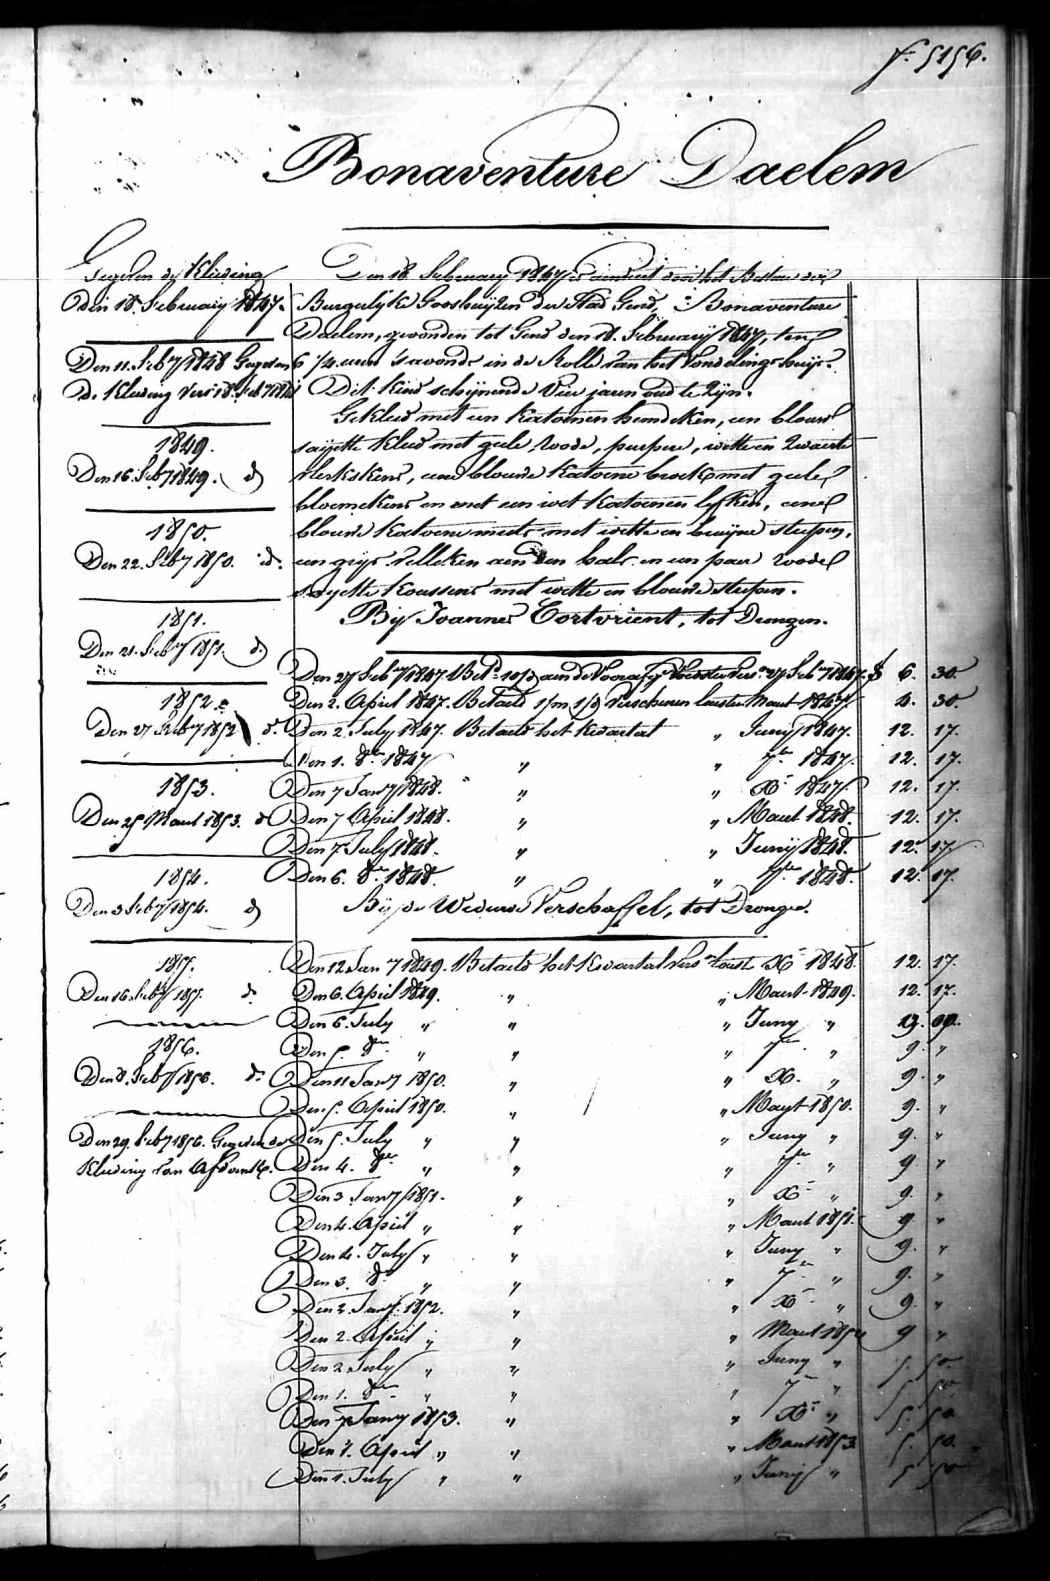 f.° 5156.
Bonaventure Daelem
Gegeven de Kleding
Den 18. February 1847.
Den 11. Feb.y 1848 Gegeven
de Kleding
1849.
Den 16. Feb.y 1849. d°
1850.
Den 22. Feb.y 1850. id.
1851.
Den 21. Feb.y 1851. d°
1852.
Den 27 Feb.y 1852 d°
1853.
Den 25 Maart 1853. d°
1854.
Den 3 Feb.y 1854. d°
1855.
Den 16. Feb.y 1855. d°
1856.
Den 8. Feb.y 1856. d°
Den 29. Feb.y 1856. Gegeven de
Kleding van
Den 18 February 1847 is door het Bestuer der
Burgerlyke Godshuyzen der Stad Gend, Bonaventure
Daelem, gevonden tot Gend den 18. February 1847, ten
6 1/4 uren s'avonds in de Rolle van het Vondelings huys.
Dit kind schynende vier jaren oud te zyn.
Gekleed met een katoenen hemdeken, een blouw
sayette kleed met geele, roode, purpere, witte en zwarte
vlekskens, eene blouwe katoene broek met geele
bloemekens en met een wit katoenen lyfken, eene
blouwe katoene muts met witte en bruyne streepen,
een grys velleken aen den hals en een paer roode
sayette koussens met witte en blouwe streepen.
By Joannes Cortvrient, tot Drongen.
Den 27 Feb.y 1847. 27 Feb.y 1847. 6. 30.
Den 2. April 1847. Betaeld Verschenen laesten Maart 1847. 4. 30.
Den 2 July 1847. Betaeld het Kwartael " Juny 1847. 12. 17.
Den 1. 8.er 1847 " " 7.er 1847. 12. 17.
Den 7 Jan.y 1848. " " X.er 1847. 12. 17.
Den 7 April 1848. " " Maart 1848. 12. 17.
Den 7 July 1848. " " Juny 1848. 12. 17
Den 6. 8.er 1848. " " 7.er 1848. 12. 17.
By de Weduwe Verschaffel, tot Drongen.
Den 12 Jan.y 1849. Betaeld het Kwartael X.er 1848. 12. 17.
Den 6. April 1849. " " Maart 1849. 12. 17.
Den 6. July " " " Juny "
Den 5. 8.er " " " 7.er " 9. "
Den 11 Jan.y 1850. " " X.er " 9. "
Den 5. April 1850. " " Maart 1850. 9. "
Den 5. July " " " Juny " 9. "
Den 4. 8.er " " " 7.er " 9 "
Den 3 Jan.y 1851. " " X.er " 9. "
Den 4. April " " " Maart 1851. 9 "
Den 4. July " " " Juny " 9. "
Den 3. 8.er " " " 7.er " 9. "
Den 2. Jan.y 1852. " " X.er " 9. "
Den 2. April " " " Maart 1852 9 "
Den 2 July " " " Juny " 5. 50.
Den 1. 8.er " " " 7.er " 5. 50
Den 7 Jan.y 1853. " " X.er " 5. 50
Den 1. April " " " Maart 1853. 5. 50.
Den 1. July " " " Juny " 5 50